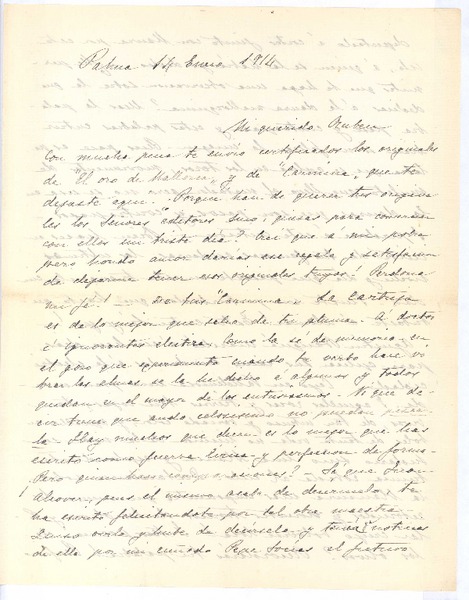 Palma 14 Enero 1914
Mi querido Rubén
Con mucha pena te envío certificados los originales
de "El oro de Mallorca", y de "Canciones", que te
dejaste aquí. Porque han de querer tres origina
les los Señores editores sino piensas para comerciar
con ellos un triste día? Creí que á mi pobre
pero hondo amor darías ese regalo y satisfacción
de dejarme tener esos originales tuyos! Perdona
mi fe! De tus "La Cartuja
es de lo mejor que salió de tu pluma. A doctos
é ignorantes electriza. Como la sé de memoria, en
el gozo que experimento cuando tu verbo hace vi
brar las almas se la he dicho á algunos y todos
quedan en el mayor de los entusiasmos. Ni que de
cir tiene que ando celosísimo no puedan
la. Hay muchos que dicen es lo mejor que has
escrito como fuerza lírica y perfección de forma.
Pero Sé que Juan
Alcover, pues él mismo acaba de decírmelo, te
ha escrito felicitándote por tal obra maestra.
de ella por un cuñado Pepe Socías el futuro